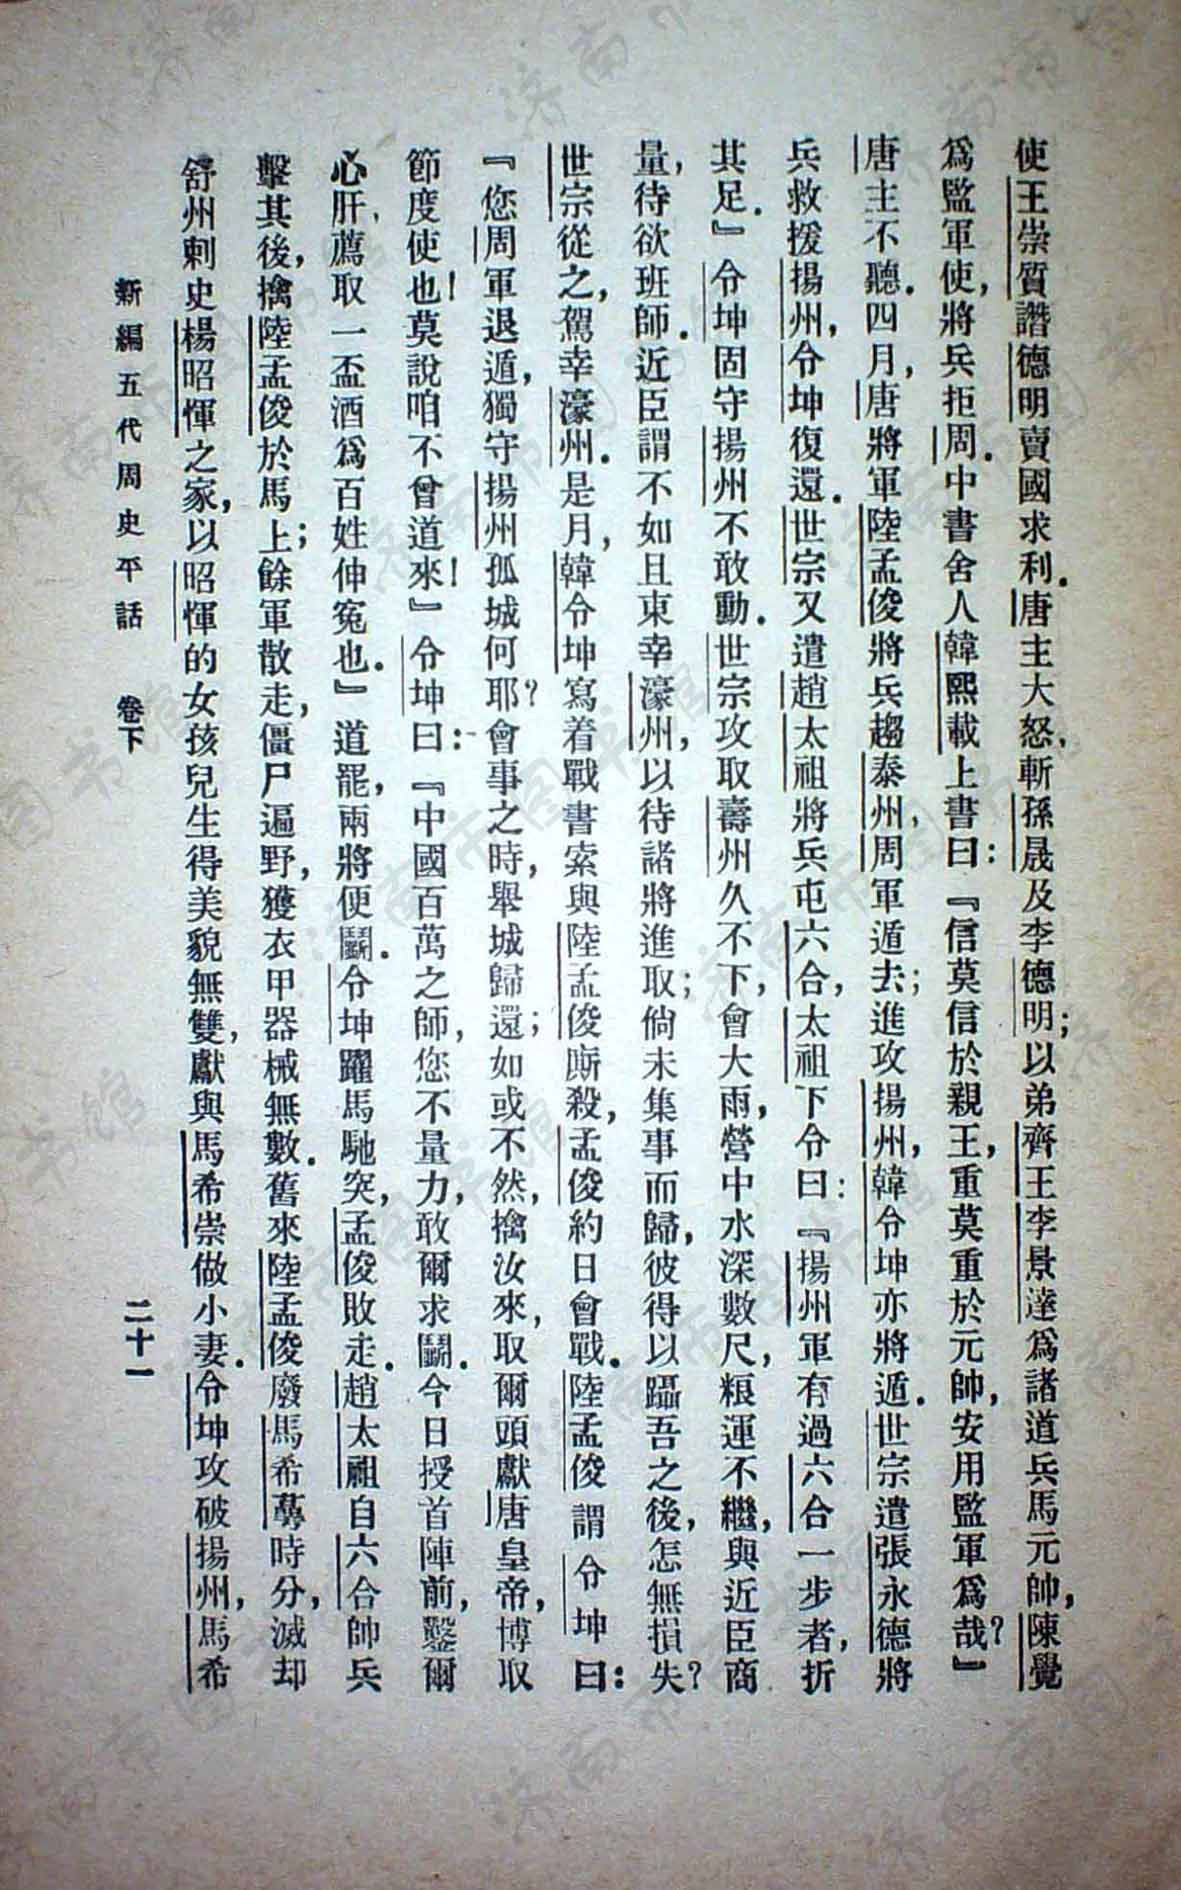 使王崇質譖德明賣國求利．唐主大怒，斬孫晟及李德明；以弟齊王李景達爲諸道兵馬元帥，陳覺
爲監軍使，將兵拒周．中書舍人韓熙載上書曰：『信莫信於親王，重莫重於元帥，安用監軍爲哉？』
唐主不聽．四月，唐將軍陸孟俊將兵趨泰州，周軍遁去；進攻揚州，韓令坤亦將遁．世宗遣張永德將
兵救援揚州，令坤復還．世宗又遣趙太祖將兵屯六合，太祖下令曰：『揚州軍有過六合一步者，折
其足．』令坤固守揚州不敢動．世宗攻取壽州久不下，會大雨，營中水深數尺，粮運不繼，與近臣商
量，待欲班師．近臣謂不如且東幸濠州，以待諸將進取；倘未集事而歸，彼得以躡吾之後，怎無損失？
世宗從之，駕幸濠州．是月，韓令坤寫着戰書索與陸孟俊廝殺，孟俊約日會戰．陸孟俊謂令坤曰：
『您周軍退遁，獨守揚州孤城何耶？會事之時，舉城歸還；如或不然，擒汝來，取爾頭獻唐皇帝，博取
節度使也！莫說咱不曾道來！』令坤曰：『中國百萬之師，您不量力，敢爾求鬭．今日授首陣前，鑿爾
心肝，薦取一盃酒爲百姓伸寃也．』道罷，兩將便鬭．令坤躍馬馳突，孟俊敗走．趙太祖自六合帥兵
擊其後，擒陸孟俊於馬上；餘軍散走，僵尸遍野，獲衣甲器械無數．舊來陸孟俊廢馬希萼時分，滅却
舒州刺史楊昭惲之家，以昭惲的女孩兒生得美貌無雙，獻與馬希崇做小妻．令坤攻破揚州，馬希
新編五代周史平話 卷下 二十一
濟南市图书馆